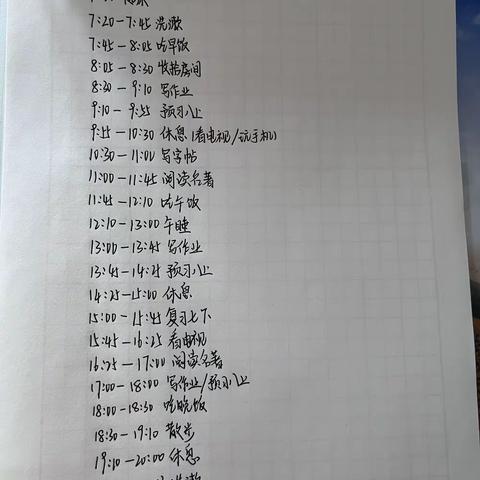 7:20-7:45 洗漱
7:45-8:05 吃早饭
8:05-8:30 收拾房间
8:30-9:10 写作业
9:10-9:55 预习八上
9:55-10:30 休息(看电视/玩手机)
10:30-11:00 写字帖
11:00-11:45 阅读名著
11:45-12:10 吃午饭
12:10-13:00 午睡
13:00-13:45 写作业
13:45-14:25 预习八上
14:25-15:00 休息
15:00-15:45 复习七下
15:45-16:25 看电视
16:25-17:00 阅读名著
17:00-18:00 写作业/预习八上
18:00-18:30 吃晚饭
18:30-19:10 散步
19:10-20:00 休息